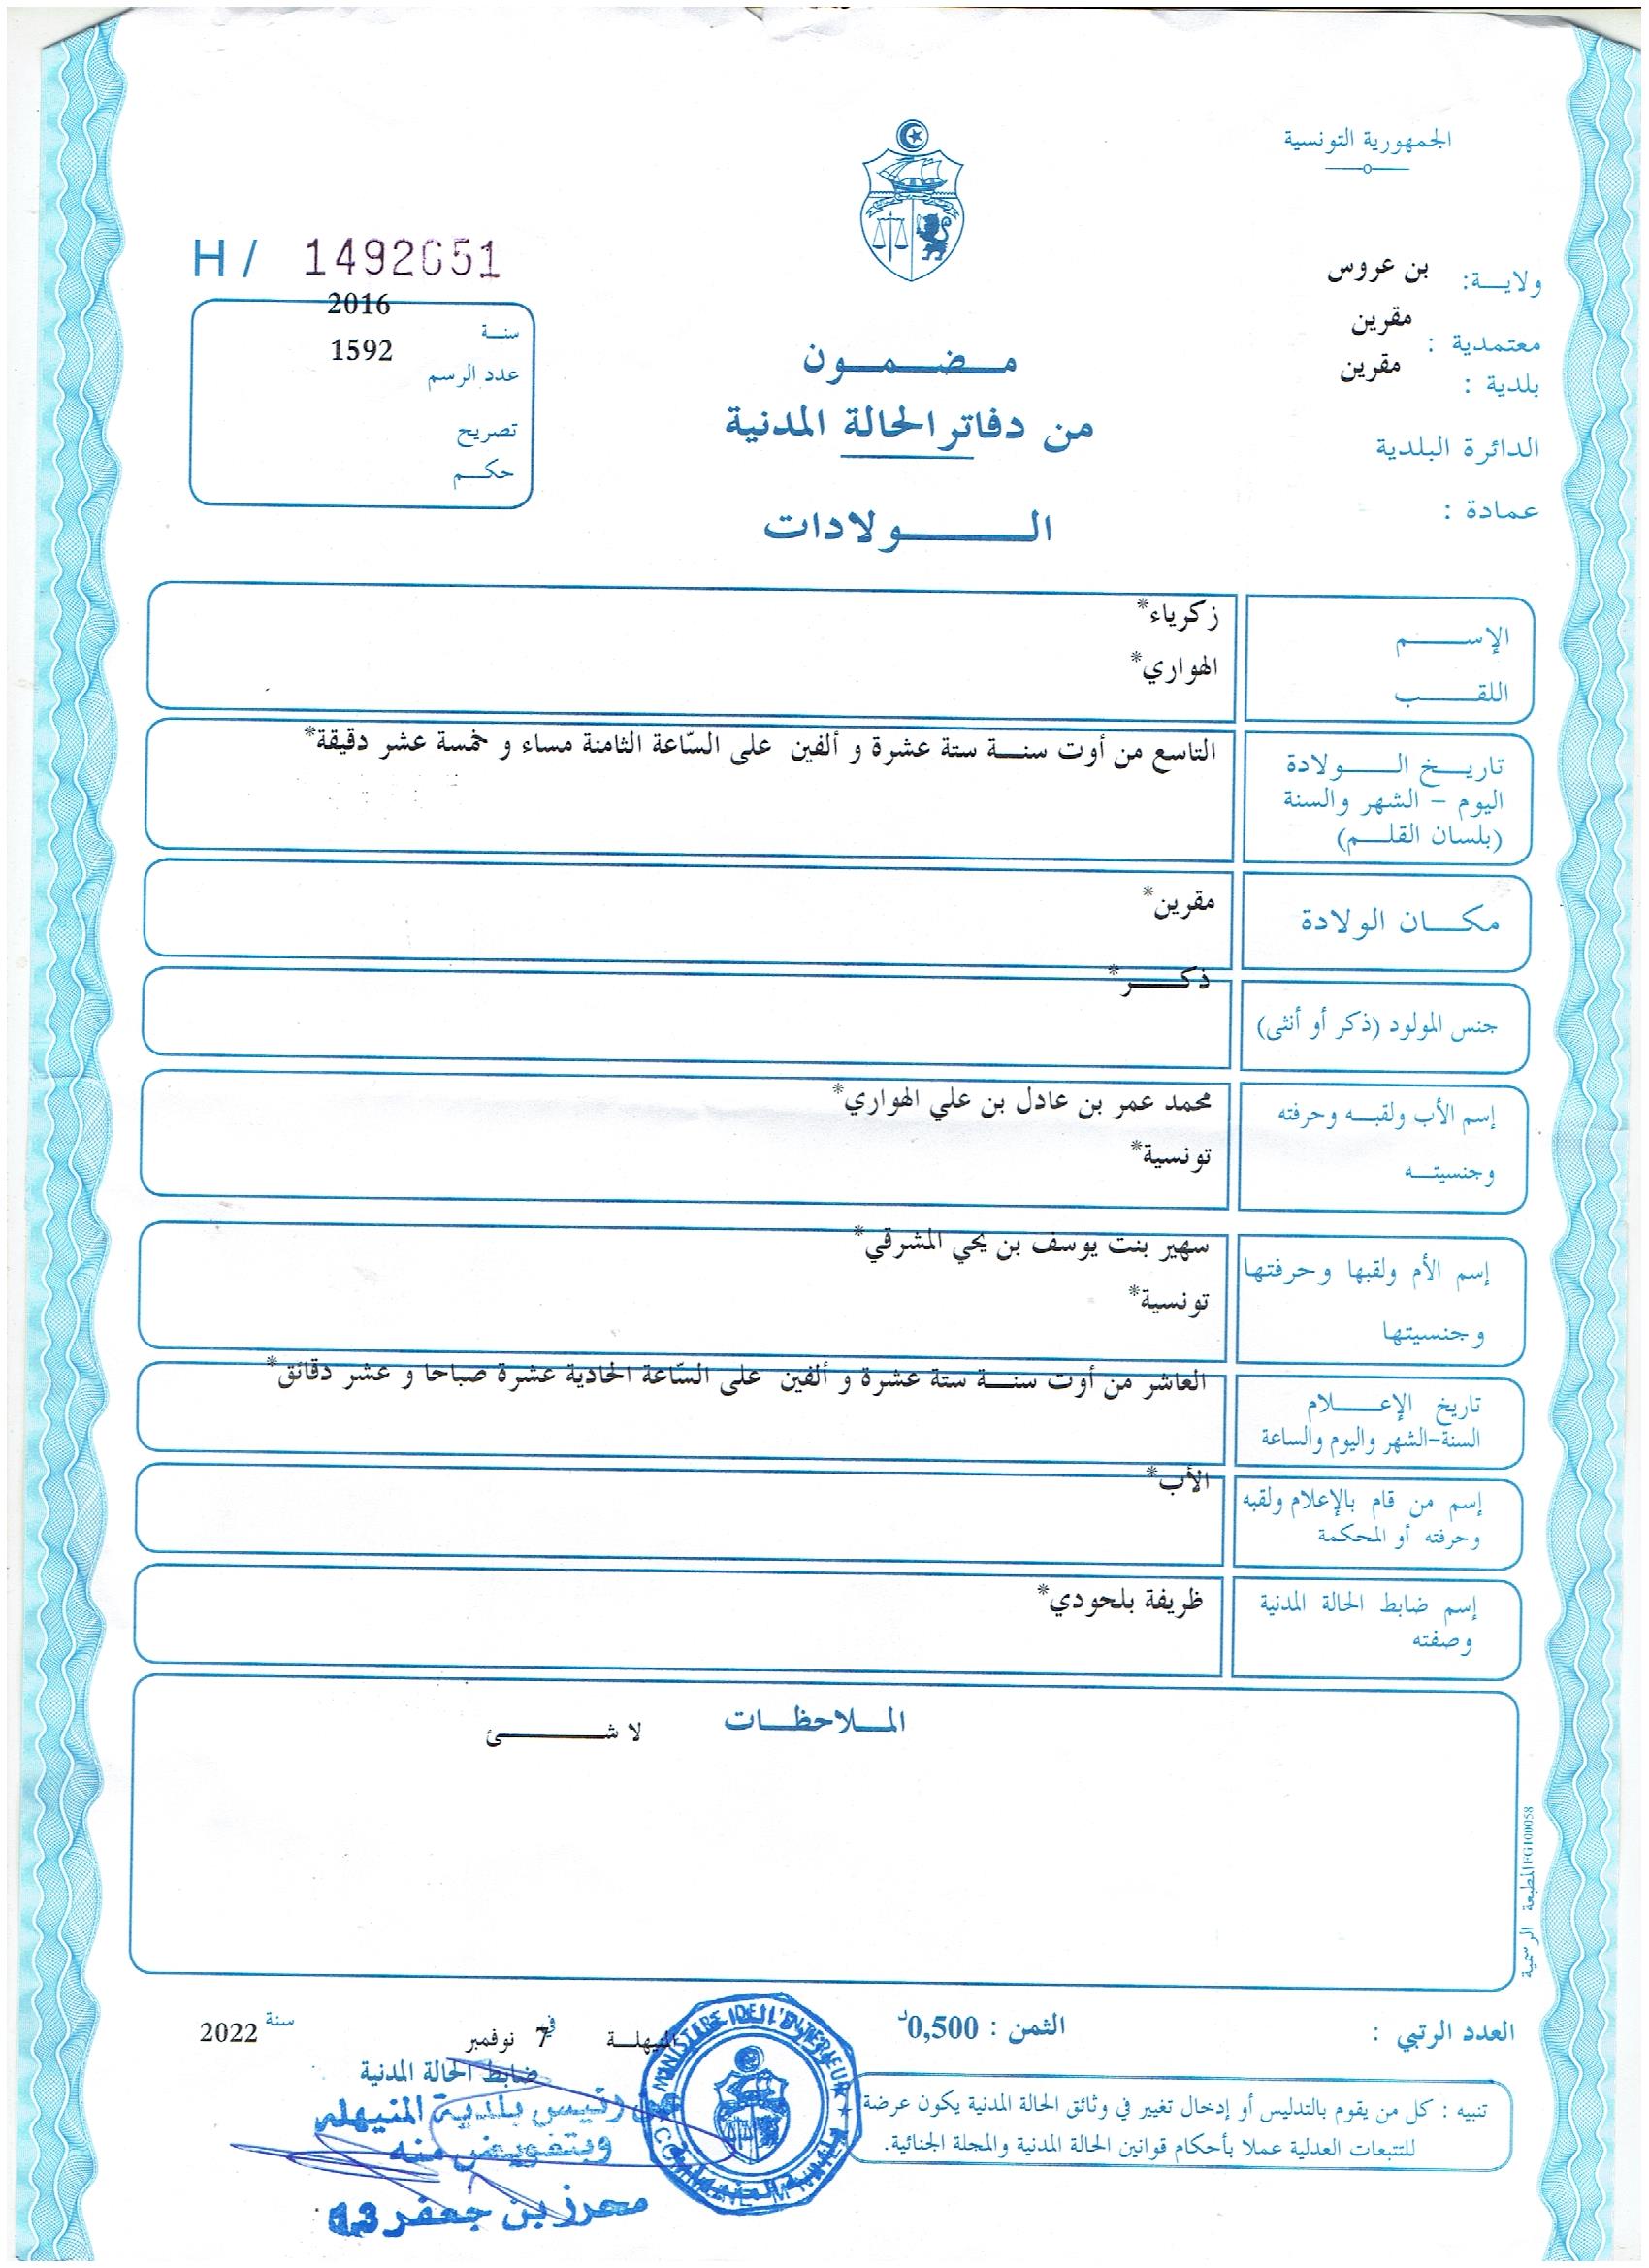 الجمهورية التونسية
H / 1492051
ولايـــة: بن عروس
معتمدية : مقرين
بلدية : مقرين
الدائرة البلدية
عمادة :
سنــة 2016
عدد الرسم 1592
تصريح
حكــم
مــضــمــون
من دفاتر الحالة المدنية
الــــولادات
الإســــم زكرياء*
اللقــــب الهواري*
تاريـــخ الـــــولادة
اليوم – الشهر والسنة
(بلسان القلـــم)
التاسع من أوت سنـــة ستة عشرة و ألفين على السّاعة الثامنة مساء و خمسة عشر دقيقة*
مكـــان الولادة مقرين*
جنس المولود (ذكر أو أنثى) ذكــــر*
إسم الأب ولقبــه وحرفته محمد عمر بن عادل بن علي الهواري*
وجنسيتــه تونسية*
إسم الأم ولقبها وحرفتها سهير بنت يوسف بن يحي المشرقي*
وجنسيتها تونسية*
تاريخ الإعـــــلام
السنة-الشهر واليوم والساعة
العاشر من أوت سنـــة ستة عشرة و ألفين على السّاعة الحادية عشرة صباحا و عشر دقائق*
إسم من قام بالإعلام ولقبه
وحرفته أو المحكمة
الأب*
إسم ضابط الحالة المدنية
وصفته
ظريفة بلحودي*
المــلاحظــات
لا شـــــئ
المطبعة الرسمية FG100058
العدد الرتبي :
الثمن : 0,500د
المنيهلــة في 7 نوفمبر سنة 2022
ضابط الحالة المدنية
تنبيه : كل من يقوم بالتدليس أو إدخال تغيير في وثائق الحالة المدنية يكون عرضة
للتتبعات العدلية عملا بأحكام قوانين الحالة المدنية والمجلة الجنائية.
رئيس بلدية المنيهلة
وبتفويض منه
محرز بن جعفر
MINISTERE DE L'INTERIEUR